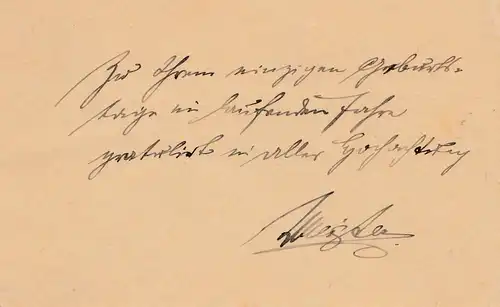 Zu Ihrem einzigen Geburts-
tage im laufenden Jahre
gratuliert in aller Hochachtung